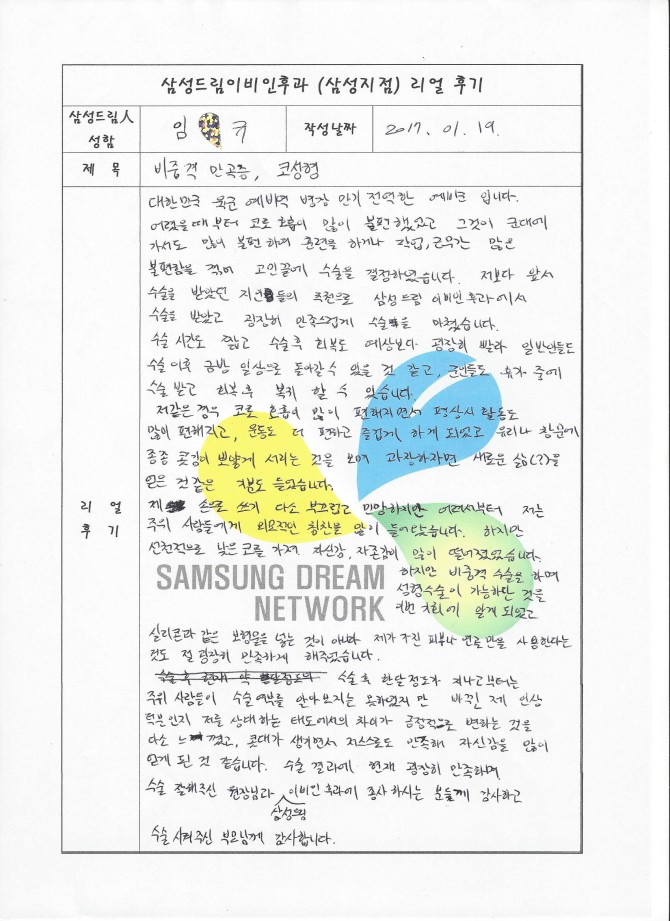 삼성드림이비인후과 (삼성지점) 리얼 후기
삼성드림人
성함
임 규
작성날짜
2017. 01. 19.
제 목
비중격 만곡증, 코성형
리 얼
후 기
대한민국 육군 예비역 병장 만기 전역한 예비군 입니다.
어렸을때 부터 코로 호흡이 많이 불편했었고 그것이 군대에
가서도 많이 불편하여 훈련을 하거나 작업, 근무간 많은
불편함을 겪어 고민끝에 수술을 결정하였습니다. 저보다 앞서
수술을 받았던 지인들의 추천으로 삼성드림 이비인후과에서
수술을 받았고 굉장히 만족스럽게 수술을 마쳤습니다.
수술 시간도 짧고 수술후 회복도 예상보다 굉장히 빨라 일반인들도
수술이후 금방 일상으로 돌아갈수 있을 것 같고, 군인들도 휴가 중에
수술 받고 회복후 복귀 할 수 있습니다.
저같은 경우 코로 호흡이 많이 편해지면서 평상시 활동도
많이 편해지고, 운동도 더 편하고 즐겁게 하게 되었고 유리나 창문에
종종 콧김이 뽀얗게 서리는 것을 보며 과장하자면 새로운 삶(?)을
얻은 것같은 기분도 들었습니다.
제 손으로 쓰기 다소 부끄럽고 민망하지만 어려서부터 저는
주위 사람들에게 외모적인 칭찬을 많이 들어왔습니다. 하지만
선천적으로 낮은 코를 가져 자신감, 자존감이 많이 떨어졌었습니다.
하지만 비중격 수술을 하며
성형수술이 가능하단 것을
이번 기회에 알게 되었고
SAMSUNG DREAM
NETWORK
실리콘과 같은 보형물을 넣는 것이 아니라 제가 가진 피부나 연골만을 사용한다는
것도 절 굉장히 만족하게 해주었습니다.
수술 후 현재 약 한달정도의 수술 후 한달 정도가 지나고부터는
주위 사람들이 수술여부를 알아보지는 못하였지만 바뀐 제 인상
덕분인지 저를 상대하는 태도에서의 차이가 긍정적으로 변하는 것을
다소 느꼈고, 콧대가 생기면서 저스스로도 만족해 자신감을 많이
얻게 된 것 같습니다. 수술 결과에 현재 굉장히 만족하며
수술 잘해주신 원장님과 삼성드림 이비인후과에 종사하시는 분들께 감사하고
수술 시켜주신 부모님께 감사합니다.